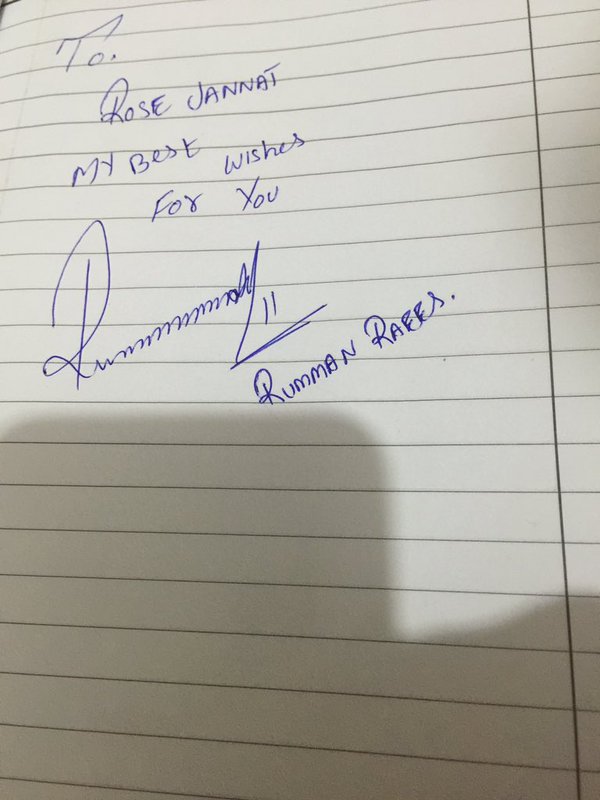 To.
ROSE JANNAT
MY BEST wishes
FOR YOU
RUMMAN RAEES.